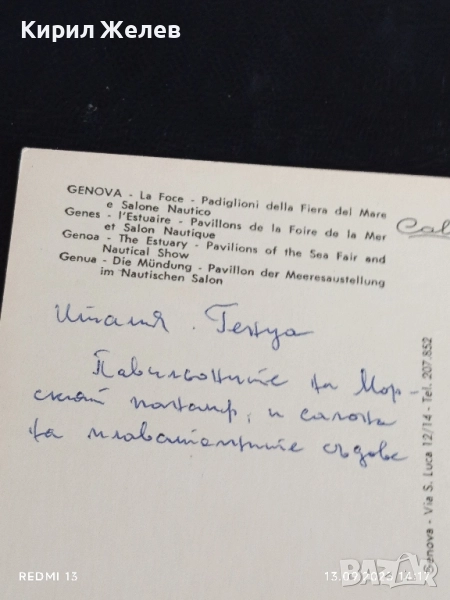 Кирил Желев
GENOVA - La Foce - Padiglioni della Fiera del Mare
e Salone Nautico
Genes - l'Estuaire - Pavillons de la Foire de la Mer
et Salon Nautique
Genoa - The Estuary - Pavilions of the Sea Fair and
Nautical Show
Genua - Die Mündung - Pavillon der Meeresaustellung
im Nautischen Salon
Италия. Генуа
Павильоните на Мор-
ският панаир, и салона
на плавателните съдове
Genova - Via S. Luca 12/14 - Tel. 207.852
REDMI 13
13.09.2023 14:17
BAZAR